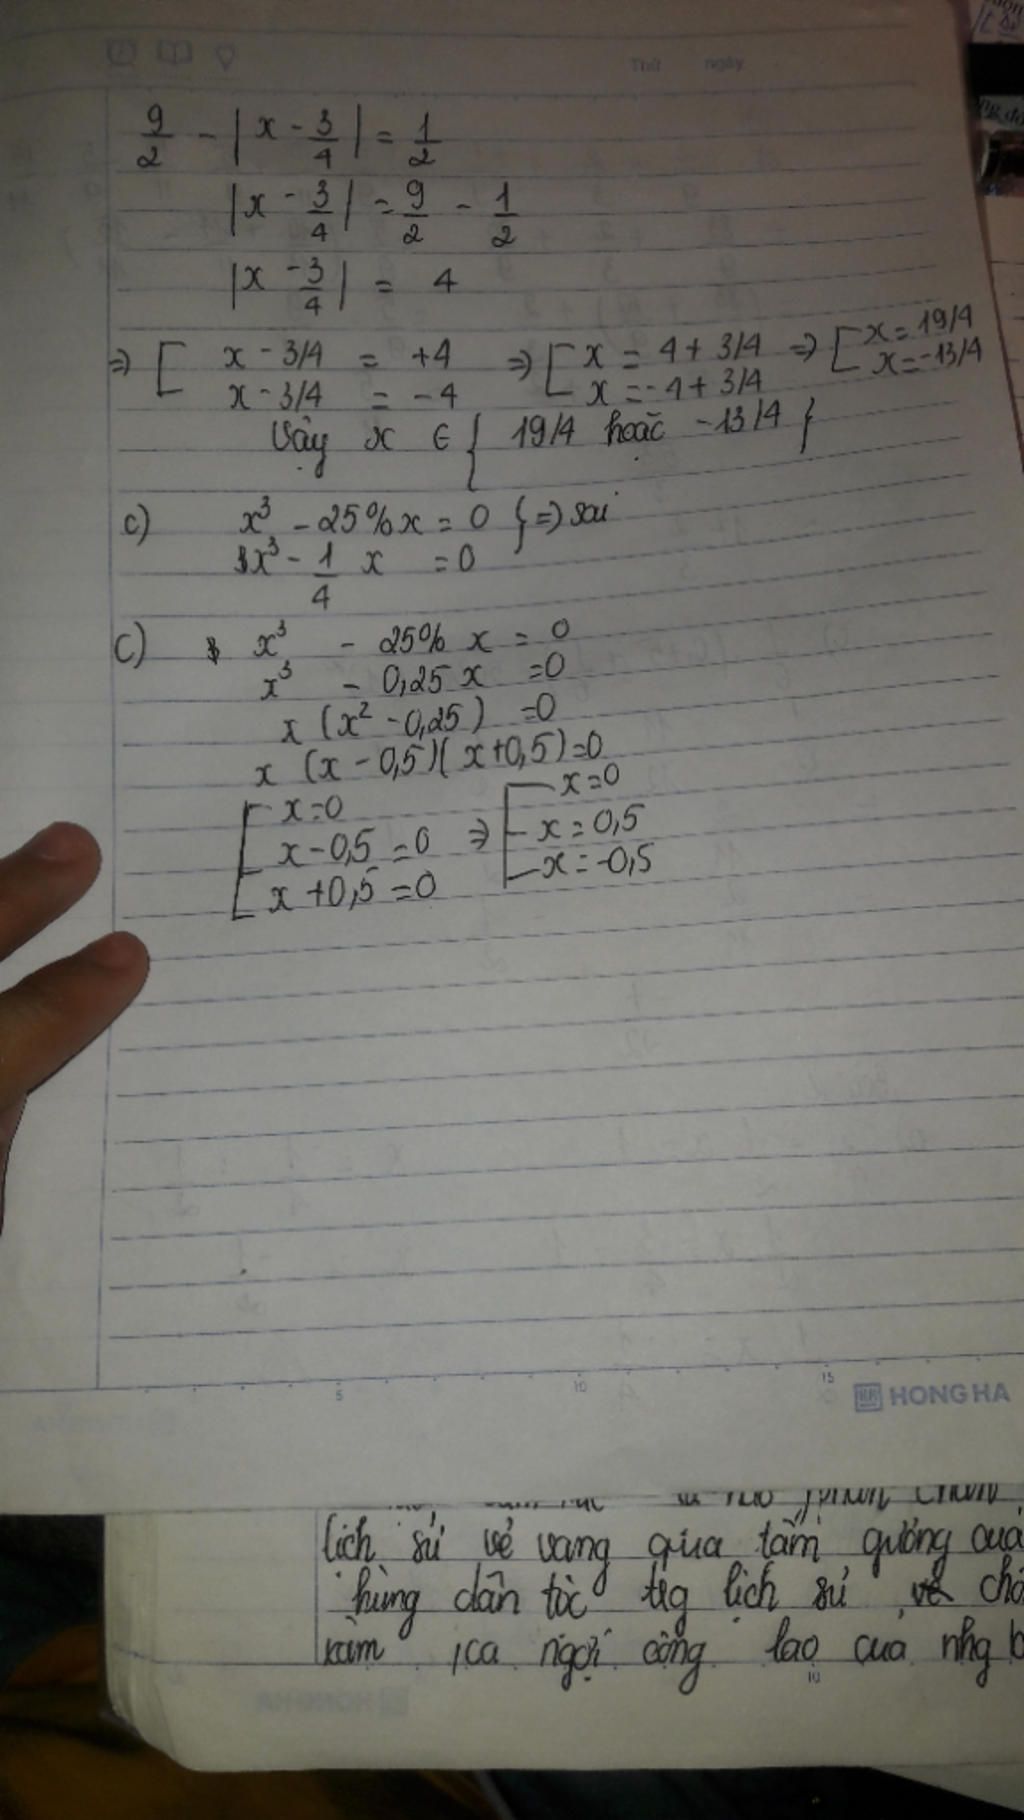 Thứ ngày
9/2 - |x - 3/4| = 1/2
|x - 3/4| = 9/2 - 1/2
|x - 3/4| = 4
=> [ x - 3/4 = +4 => [ x = 4 + 3/4 => [ x = 19/4
x - 3/4 = -4 x = -4 + 3/4 x = -13/4
Vậy x ∈ { 19/4 hoặc -13/4 }
c) x³ - 25% x = 0 } => sai
x³ - 1/4 x = 0
C) x³ - 25% x = 0
x³ - 0,25 x = 0
x (x² - 0,25) = 0
x (x - 0,5)(x + 0,5) = 0
[ x = 0 => [ x = 0
x - 0,5 = 0 x = 0,5
x + 0,5 = 0 x = -0,5
5 10 15
HONG HA
lịch sử vẻ vang qua tấm gương
hùng dân tộc tıg lịch sử về
ca ngợi công lao của nhg
10